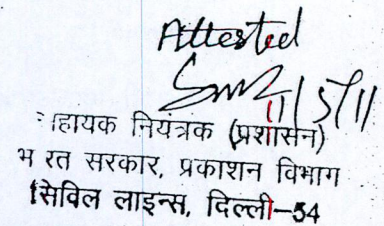 Attested
11/5/11
सहायक नियंत्रक (प्रशासन)
भ रत सरकार, प्रकाशन विभाग
सिविल लाइन्स, दिल्ली-54